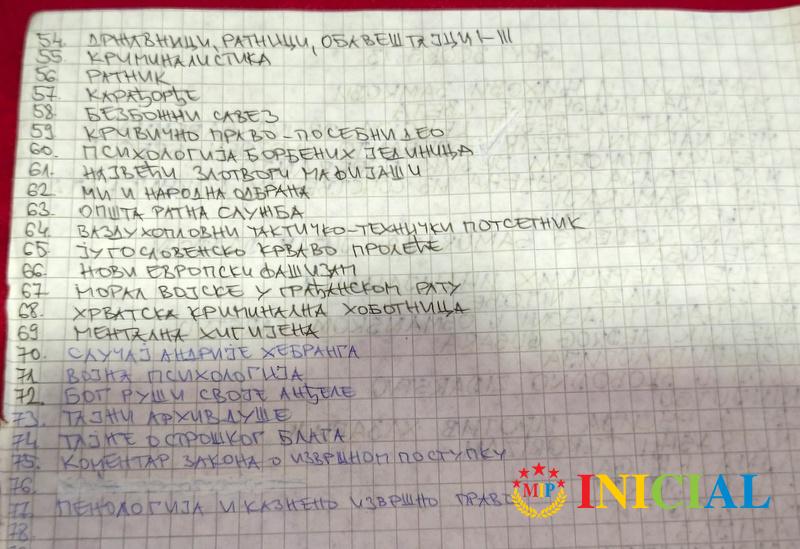 54. ДРЖАВНИЦИ, РАТНИЦИ, ОБАВЕШТАЈЦИ I-III
55 КРИМИНАЛИСТИКА
56 РАТНИК
57. КАРАЂОРЂЕ
58. БЕЗБОЖНИ САВЕЗ
59 КРИВИЧНО ПРАВО-ПОСЕБНИ ДЕО
60. ПСИХОЛОГИЈА БОРБЕНИХ ЈЕДИНИЦА
61. НАЈВЕЋИ ЗЛОТВОРИ МАФИЈАШИ
62 МИ И НАРОДНА ОДБРАНА
63. ОПШТА РАТНА СЛУЖБА
64 ВАЗДУХОПЛОВНИ ТАКТИЧКО-ТЕХНИЧКИ ПОТСЕТНИК
65 ЈУГОСЛОВЕНСКО КРВАВО ПРОЛЕЋЕ
66. НОВИ ЕВРОПСКИ ФАШИЗАМ
67 МОРАЛ ВОЈСКЕ У ГРАЂАНСКОМ РАТУ
68. ХРВАТСКА КРИМИНАЛНА ХОБОТНИЦА
69 МЕНТАЛНА ХИГИЈЕНА
70. СЛУЧАЈ АНДРИЈЕ ХЕБРАНГА
71. ВОЈНА ПСИХОЛОГИЈА
72. БОГ РУШИ СВОЈЕ АНЂЕЛЕ
73. ТАЈНИ АРХИВ ДУШЕ
74. ТАЈНЕ ОСТРОШКОГ БЛАГА
75. КОМЕНТАР ЗАКОНА О ИЗВРШНОМ ПОСТУПКУ
76.
77. ПЕНОЛОГИЈА И КАЗНЕНО ИЗВРШНО
78.
MIP INICIAL